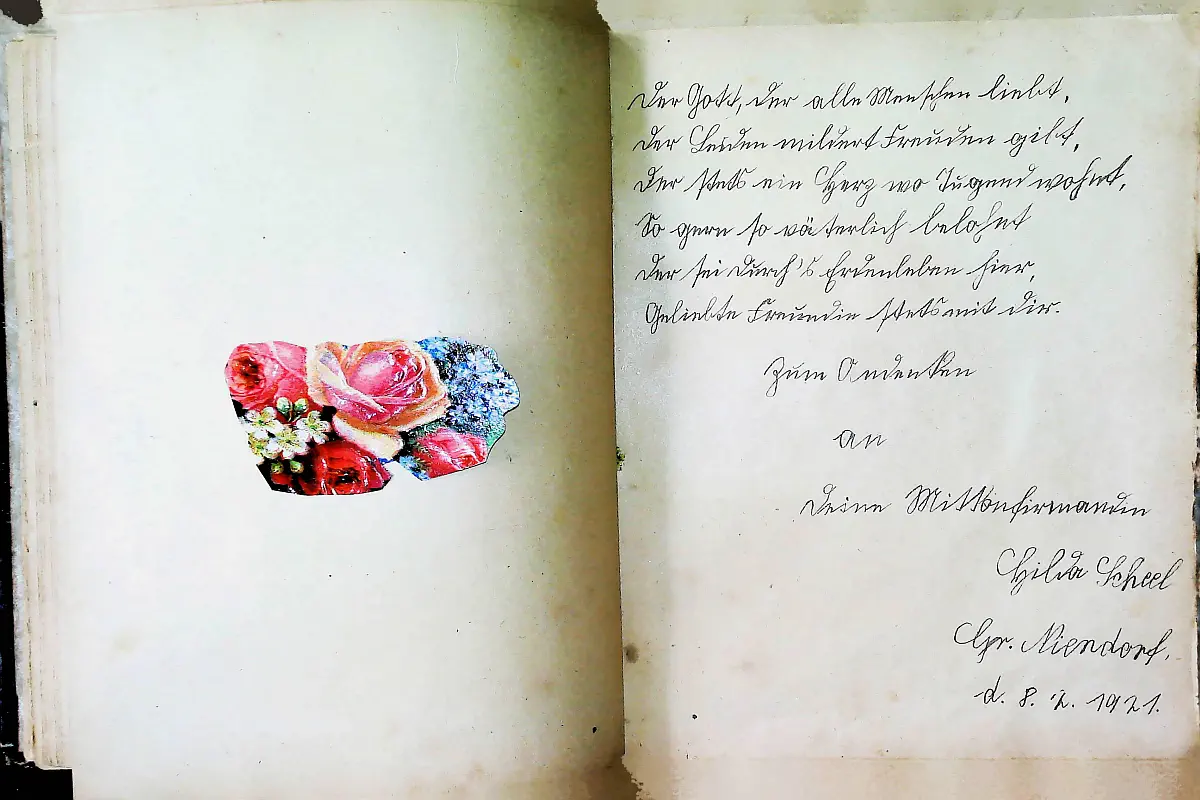 Der Gott, der alle Menschen liebt,
der Leiden mildert Freuden gibt,
Der stets ein Herz wo Tugend wohnt,
So gern so väterlich belohnt
der sei durch's Erdenleben hier,
Geliebte Freundin stets mit dir.
Zum Andenken
an
Deine Mitkonfirmandin
Hilda Scheel
Gr. Niendorf,
d. 8. 2. 1921.